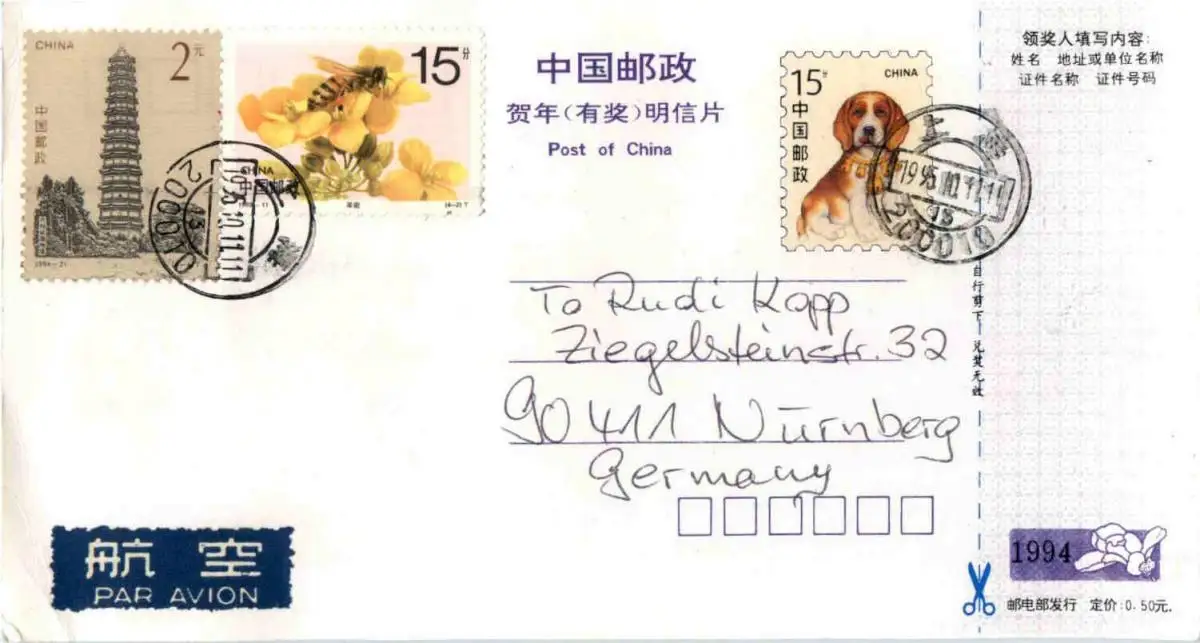 CHINA
2元
中国邮政
1994-21
15分
CHINA
中国邮政
1993-11
(4-2)T
中国邮政
贺年(有奖)明信片
Post of China
15分
CHINA
中国邮政
上海
1995.10.11.11
200010
To Rudi Kapp
Ziegelsteinstr. 32
90411 Nürnberg
Germany
航空
PAR AVION
领奖人填写内容:
姓名 地址或单位名称
证件名称 证件号码
自行剪下 兑奖无效
1994
邮电部发行 定价:0.50元.